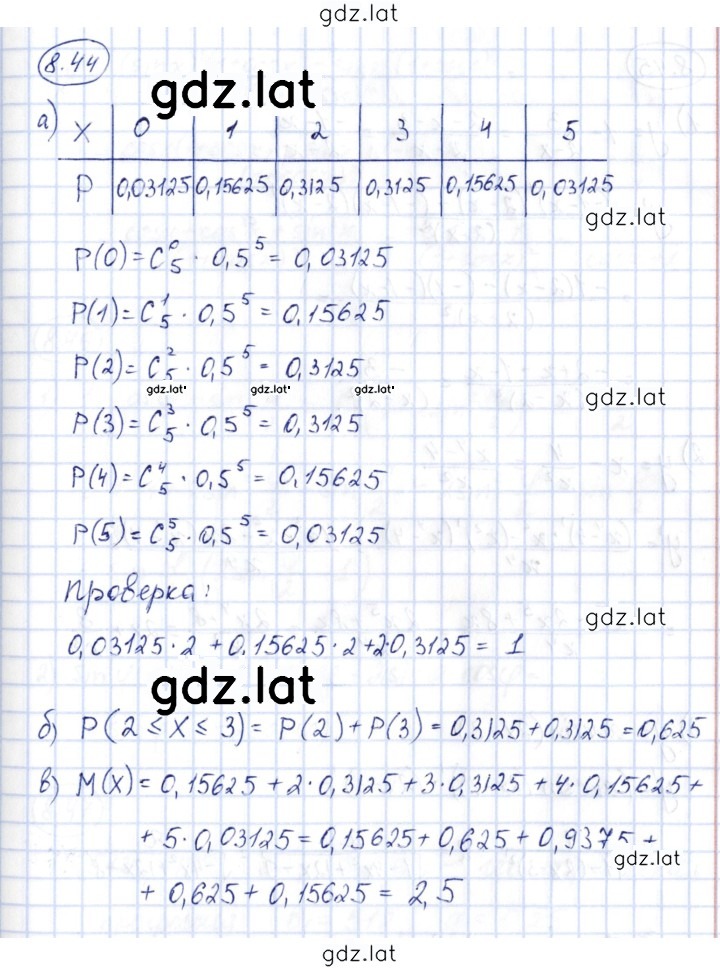 gdz.lat
8.44
gdz.lat
а) X 0 1 2 3 4 5
P 0,03125 0,15625 0,3125 0,3125 0,15625 0,03125
gdz.lat
P(0)=C₅⁰ · 0,5⁵ = 0,03125
P(1)=C₅¹ · 0,5⁵ = 0,15625
P(2)=C₅² · 0,5⁵ = 0,3125
gdz.lat gdz.lat gdz.lat gdz.lat
P(3)=C₅³ · 0,5⁵ = 0,3125
P(4)=C₅⁴ · 0,5⁵ = 0,15625
P(5)=C₅⁵ · 0,5⁵ = 0,03125
Проверка:
gdz.lat
0,03125·2 + 0.15625·2+2·0,3125 = 1
gdz.lat
б) P(2 ≤ X ≤ 3) = P(2)+P(3) = 0,3125+0,3125 = 0,625
в) M(X) = 0,15625 + 2·0,3125 + 3·0,3125 + 4·0,15625 +
+ 5·0,03125 = 0,15625 + 0,625 + 0,9375 +
gdz.lat
+ 0,625 + 0,15625 = 2,5
gdz.lat